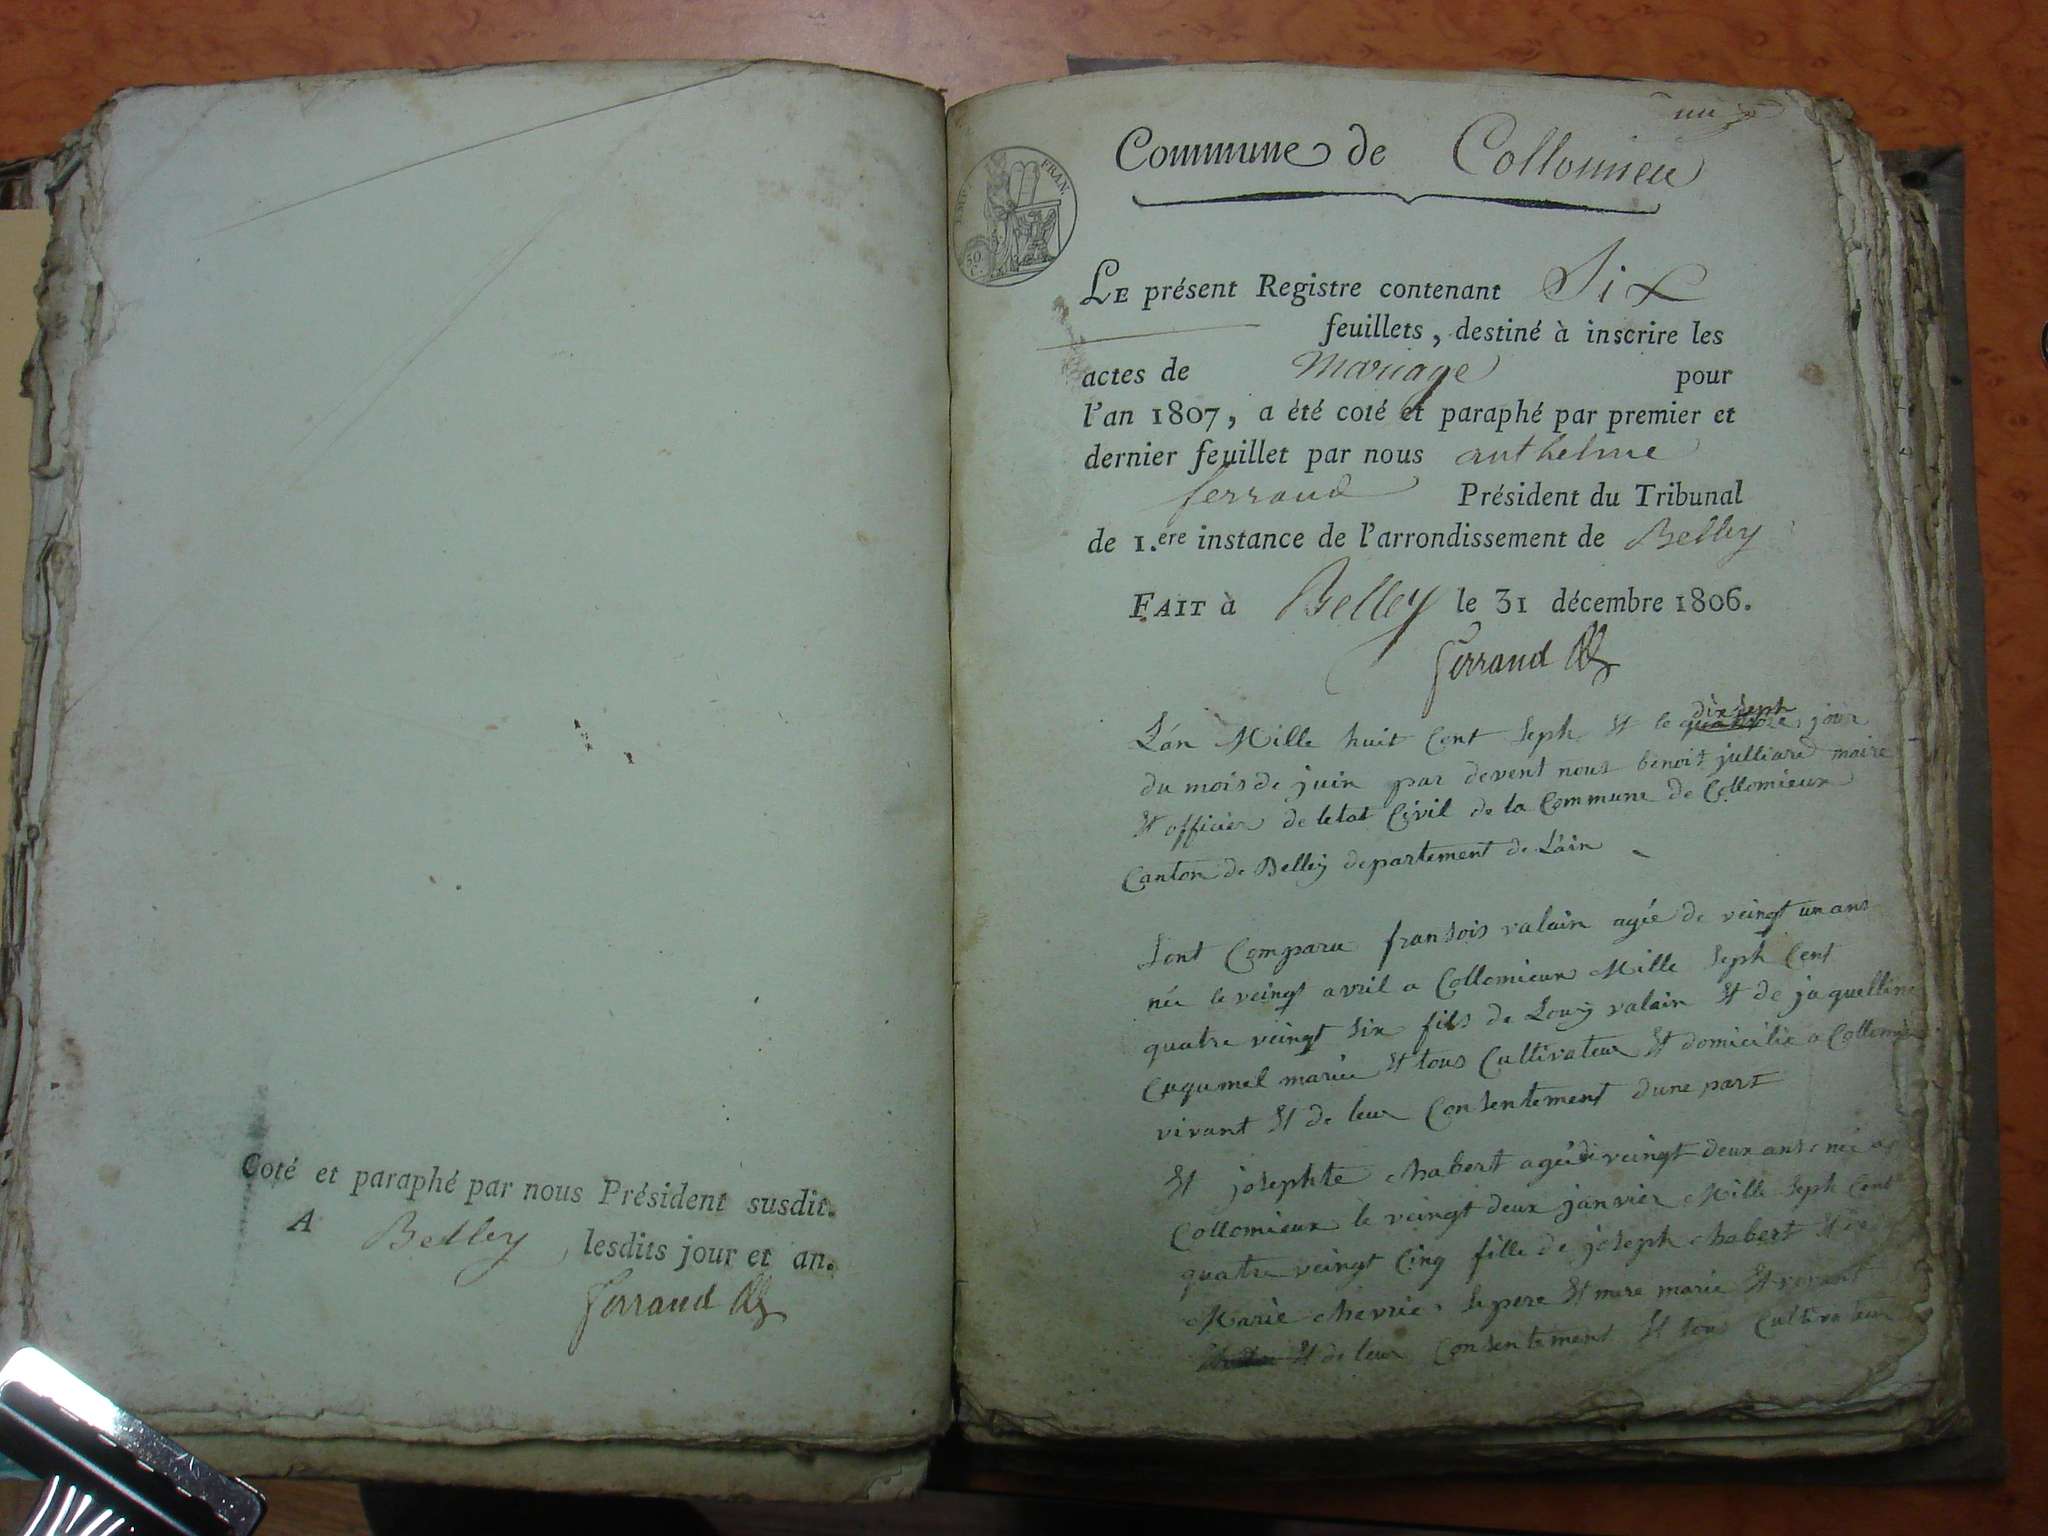 Coté et paraphé par nous Président susdit.
A Belley, lesdits jour et an.
Ferraud
un
Commune de Collomieu
EMP. FRAN.
50 C.
LE présent Registre contenant Six
feuillets, destiné à inscrire les
actes de Mariage pour
l'an 1807, a été coté et paraphé par premier et
dernier feuillet par nous anthelme
ferraud Président du Tribunal
de 1.ere instance de l'arrondissement de Belley
FAIT à Belley le 31 décembre 1806.
Ferraud
dix Seph
L'an Mille huit Cent Seph Et le quatorze jour
du mois de juin par devent nous benoit julliard maire
Et officier de letat Civil de la Commune de Collomieux
Canton de Belley departement de L'ain
Sont Comparu fransois valain agée de veingt un ans
née le veingt avril a Collomieux Mille Seph Cent
quatre veingt Six fils de Louy valain Et de jaquelline
Cuqumel marié Et tous Cultivateur Et domicilie a Collomieu
vivant Et de leur Consentement dune part
Et josephte Chabert agée de veingt deux ans née a
Collomieux le veingt deux janvier Mille Seph Cent
quatre veingt Cinq fille de joseph Chabert Et de
Marie Chevrie le pere Et mere marie Et vivant
Et de leur Consentement Et tous Cultivateur